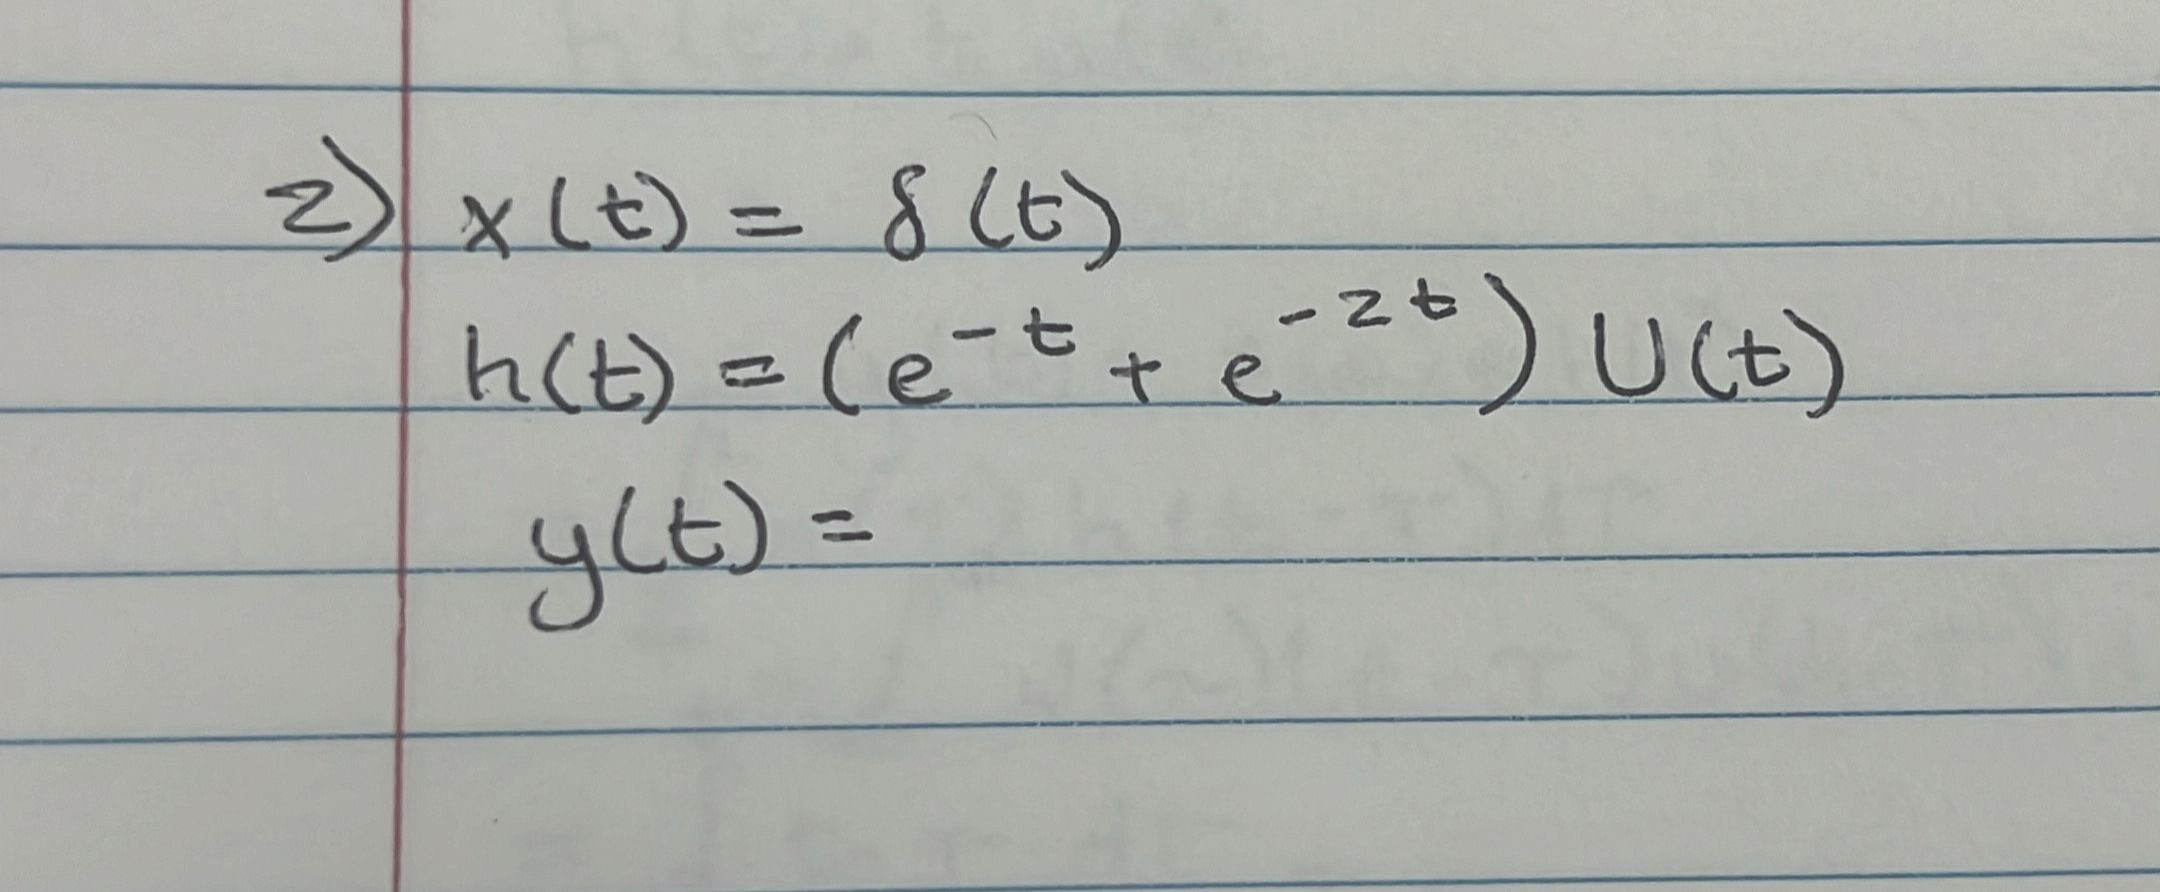 2) x(t) = δ(t)
h(t) = (e^-t + e^-2t) U(t)
y(t) =